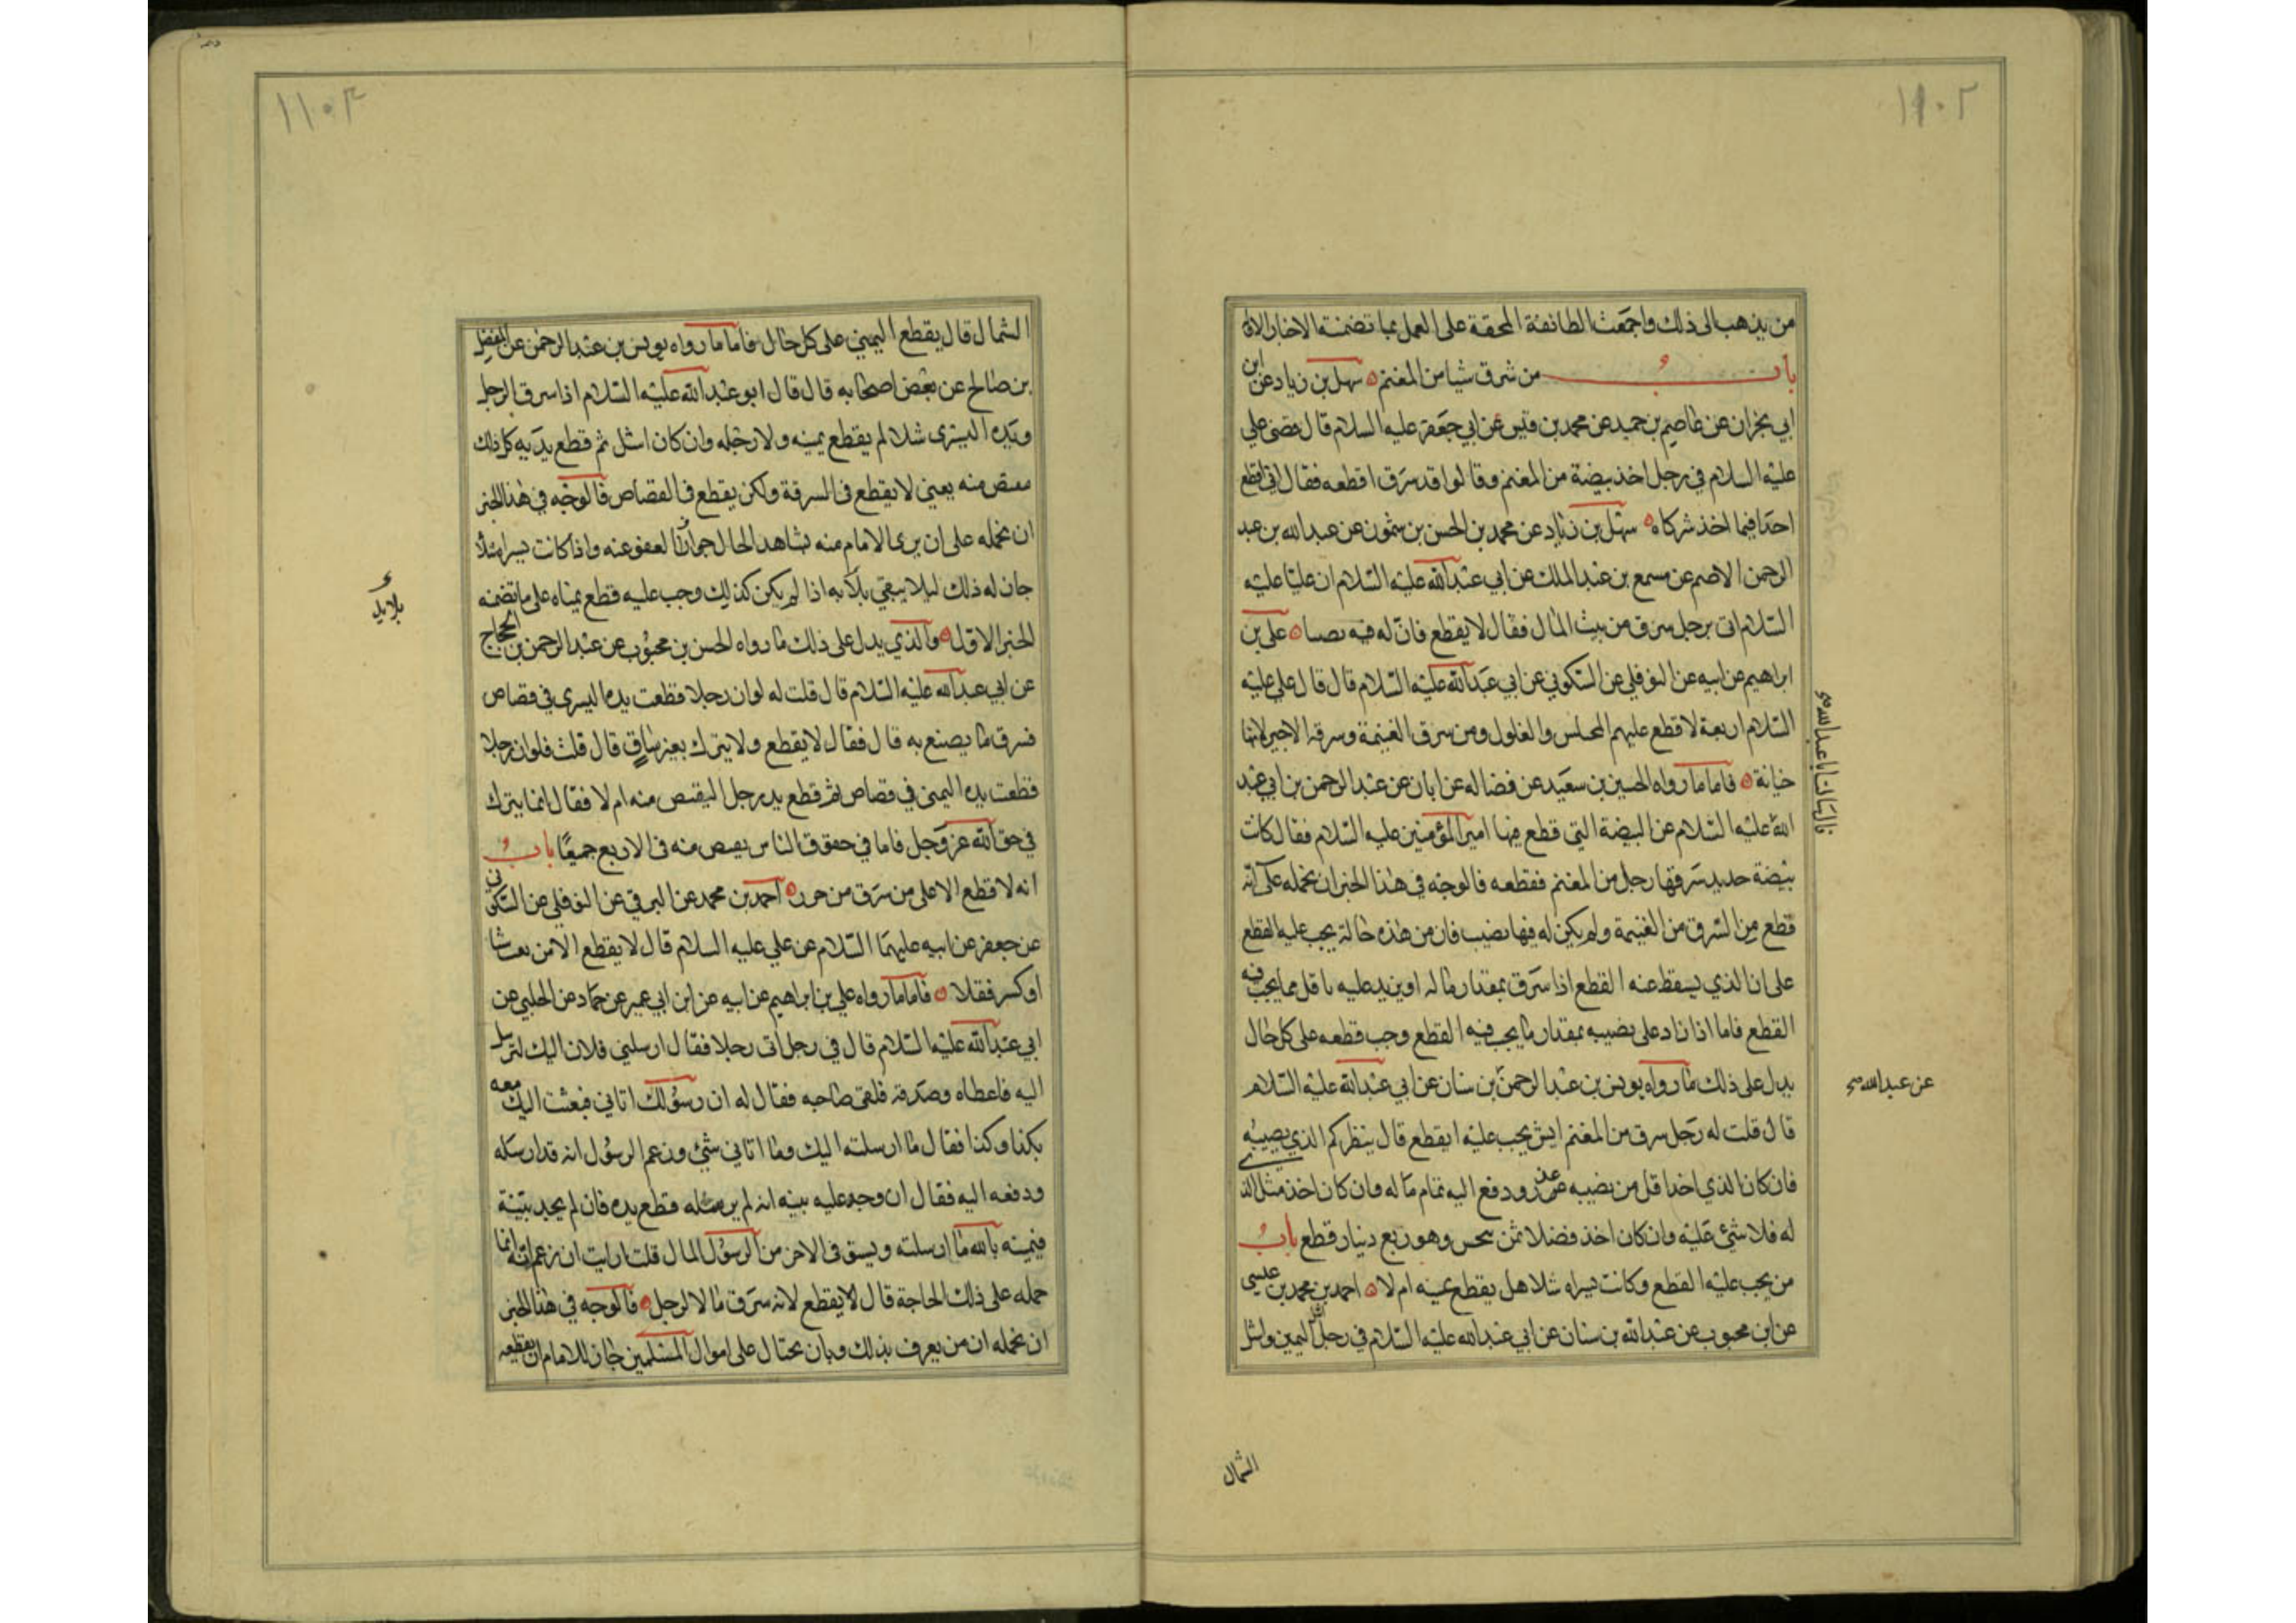 ١١٠٢
من يذهب الى ذلك واجمعت الطائفة المحقة على العمل بما تضمنة الاخبار الاولة
باب من سرق شيا من المغنم سهل بن زياد عن ابن
ابي نجران عن عاصم بن حميد عن محمد بن قيس عن ابي جعفر عليه السلام قال قضى علي
عليه السلام في رجل اخذ بيضة من المغنم وقالوا قد سرق اقطعه فقال اني لم اقطع
احدا فيما اخذ شركاه سهل بن زياد عن محمد بن الحسن بن شمون عن عبد الله بن عبد
الرحمن الاصم عن مسمع بن عبد الملك عن ابي عبد الله عليه السلام ان عليا عليه
السلام اتى برجل سرق من بيت المال فقال لا يقطع فان له فيه نصيبا علي بن
ابراهيم عن ابيه عن النوفلي عن السكوني عن ابي عبد الله عليه السلام قال قال علي عليه
السلام اربعة لا قطع عليهم المختلس والغلول ومن سرق الغنيمة وسرقة الاجير لانها
خيانة فاما ما رواه الحسين بن سعيد عن فضاله عن ابان عن عبد الرحمن بن ابي عبد
قال سالت ابا عبد الله
الله عليه السلام عن البيضة التي قطع فيها امير المؤمنين عليه السلام فقال كانت
بيضة حديد سرقها رجل من المغنم فقطعه فالوجه في هذا الخبر ان نحمله على انه
قطع من السرق من الغنيمة ولم يكن له فيها نصيب فان من هذه حالته يجب عليه القطع
على ان الذي يسقط عنه القطع اذا سرق بمقدار ماله او يزيد عليه باقل مما يجب فيه
القطع فاما اذا زاد على نصيبه بمقدار ما يجب فيه القطع وجب قطعه على كل حال
يدل على ذلك ما رواه يونس بن عبد الرحمن بن سنان عن ابي عبد الله عليه السلام
عن عبد الله
قال قلت له رجل سرق من المغنم ايش يجب عليه ايقطع قال ينظر كم الذي يصيبه
فان كان الذي اخذ اقل من نصيبه عزر ودفع اليه تمام ماله وان كان اخذ مثل الذي
له فلا شئ عليه وان كان اخذ فضلا ثمن مجن وهو ربع دينار قطع باب
من يجب عليه القطع وكانت يسراه شلا هل يقطع يمينه ام لا احمد بن محمد بن عيسى
عن ابن محبوب عن عبد الله بن سنان عن ابي عبد الله عليه السلام في رجل اشل اليمين واشل
الشمال
١١٠٣
الشمال قال يقطع اليمنى على كل حال فاما ما رواه يونس بن عبد الرحمن عن المفضل
بن صالح عن بعض اصحابه قال قال ابو عبد الله عليه السلام اذا سرق الرجل
ويده اليسرى شلا لم يقطع يمينه ولا رجله وان كان اشل ثم قطع يد رجل
منه يعني لا يقطع في السرقة ولكن يقطع في القصاص فالوجه في هذا الخبر
ان نحمله على ان يرى الامام منه بشاهد الحال العفو عنه واذا كانت يسراه شلا
جاز له ذلك ليلا يبقى بلا يد اذا لم يكن كذلك وجب عليه قطع يمناه على ما تضمنه
بلا يد
الخبر الاول والذي يدل على ذلك ما رواه الحسن بن محبوب عن عبد الرحمن بن الحجاج
عن ابي عبد الله عليه السلام قال قلت له لو ان رجلا قطعت يده اليسرى في قصاص
فسرق ما يصنع به قال فقال لا يقطع ولا يترك بغير ساق قال قلت فلو ان رجلا
قطعت يده اليمنى في قصاص ثم قطع يد رجل اليقتص منه ام لا فقال انما يترك
في حق الله عز وجل فاما في حقوق الناس يقتص منه في الاربع جميعا باب
انه لا قطع الا على من سرق من حرز احمد بن محمد عن البرقي عن النوفلي عن السكوني
عن جعفر عن ابيه عليهما السلام عن علي عليه السلام قال لا يقطع الا من نقب بيتا
او كسر قفلا فاما ما رواه علي بن ابراهيم عن ابيه عن ابن ابي عمير عن حماد عن الحلبي عن
ابي عبد الله عليه السلام قال في رجل اتى رجلا فقال ارسلني فلان اليك لترسل
اليه فاعطاه وصدقه فلقى صاحبه فقال له ان رسولك اتاني فبعثت اليك معه
بكذا وكذا فقال ما ارسلته اليك وما اتاني شئ وزعم الرسول انه قد ارسله
ودفعه اليه فقال ان وجد عليه بينه انه لم يرسله قطع يده فان لم يجد بينة
فيمينه بالله ما ارسلته ويستوفى الاخر من الرسول المال قلت ارايت ان زعم انه انما
حمله على ذلك الحاجة قال لا يقطع لانه سرق مال الرجل فالوجه في هذا الخبر
ان نحمله ان من يعرف بذلك وبان يحتال على اموال المسلمين جاز للامام ان يقطعه